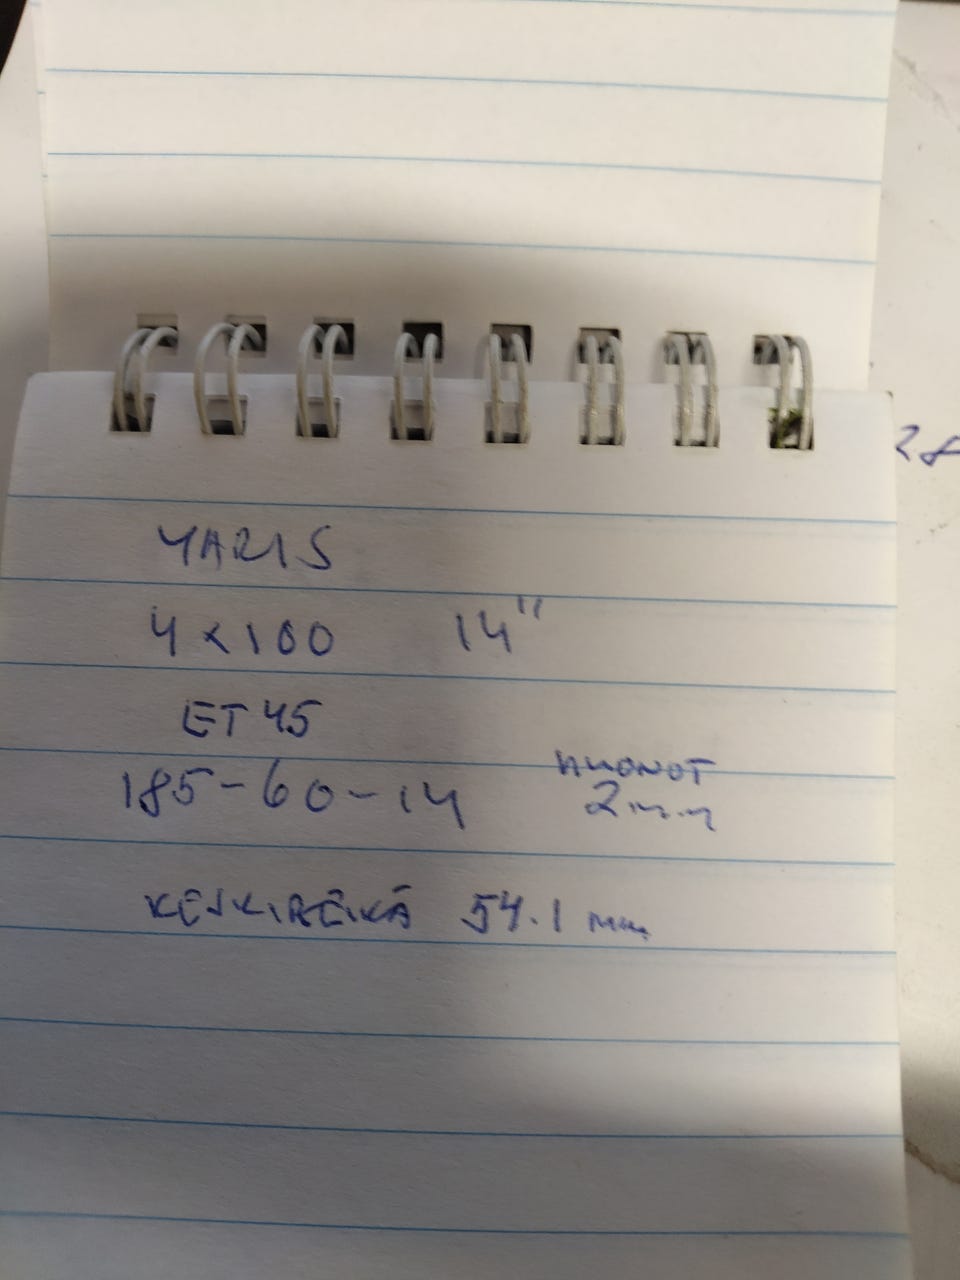 YARIS
4x100 14"
ET45
HUONOT
185-60-14 2mm
KESKIREIKÄ 54.1 mm
28